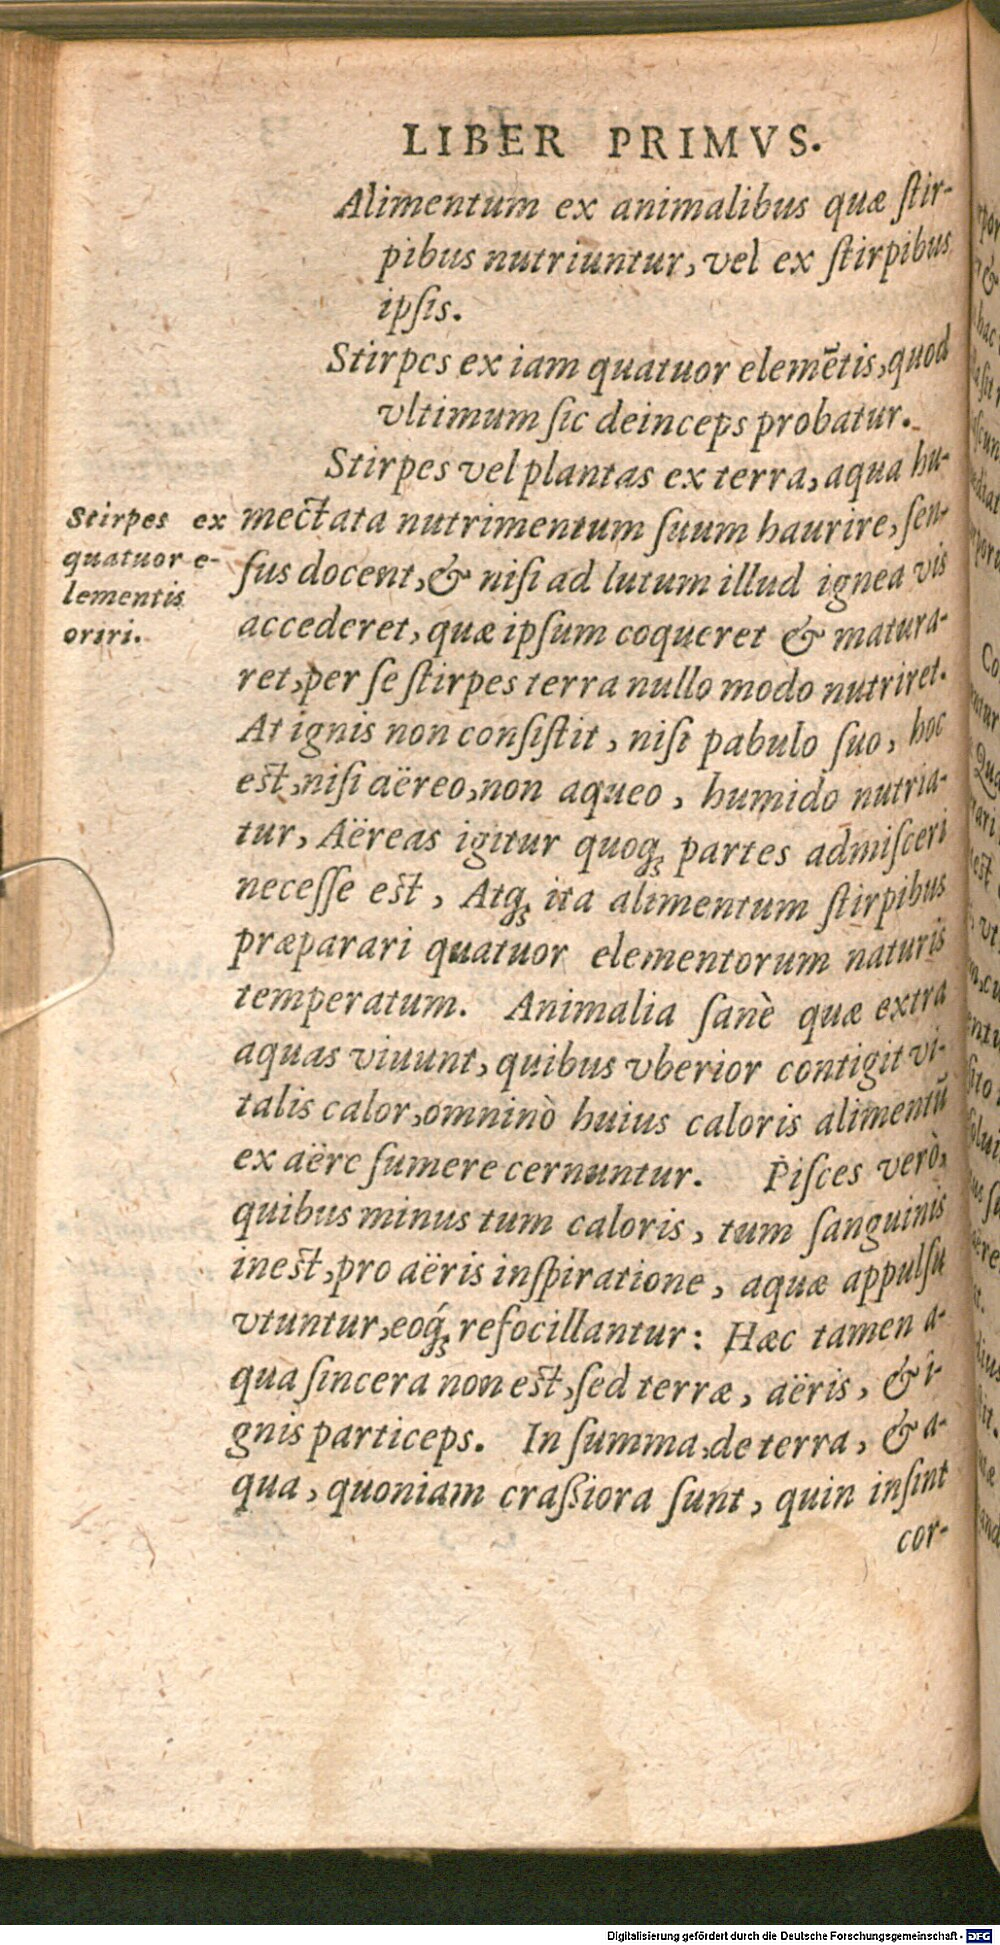 LIBER PRIMVS.
Alimentum ex animalibus quæ ſtir-
pibus nutriuntur, vel ex ſtirpibus
ipſis.
Stirpes ex iam quatuor elemẽtis, quod
vltimum ſic deinceps probatur.
Stirpes vel plantas ex terra, aqua hu-
Stirpes ex
quatuor e-
lementis
oriri.
mectata nutrimentum ſuum haurire, ſen-
ſus docent, & niſi ad lutum illud ignea vis
accederet, quæ ipſum coqueret & matura-
ret, per ſe ſtirpes terra nullo modo nutriret.
At ignis non conſiſtit, niſi pabulo ſuo, hoc
est, niſi aëreo, non aqueo, humido nutria-
tur, Aëreas igitur quoq; partes admiſceri
neceſſe est, Atq; ita alimentum ſtirpibus
præparari quatuor elementorum naturis
temperatum. Animalia ſanè quæ extra
aquas viuunt, quibus vberior contigit vi-
talis calor, omninò huius caloris alimentũ
ex aëre ſumere cernuntur. Piſces verò,
quibus minus tum caloris, tum ſanguinis
inest, pro aëris inſpiratione, aquæ appulſu
vtuntur, eoq́; refocillantur: Hæc tamen a-
qua ſincera non est, ſed terræ, aëris, & i-
gnis particeps. In ſumma, de terra, & a-
qua, quoniam craßiora ſunt, quin inſint
cor-
Digitalisierung gefördert durch die Deutsche Forschungsgemeinschaft - DFG